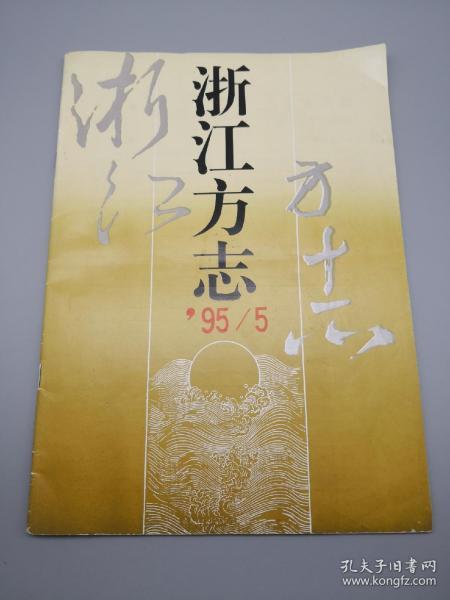 浙江方志
浙江
方志
'95/5
孔夫子旧书网
www.kongfz.com